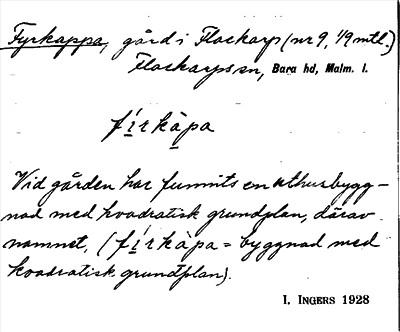 Fyrkappa, gård i Flackarp (nr 9, 1/9 mtl.)
Flackarps sn, Bara hd, Malm. l.
fírkàpa
Vid gården har funnits en uthusbygg-
nad med kvadratisk grundplan, därav
namnet, (fírkàpa = byggnad med
kvadratisk grundplan).
I. INGERS 1928